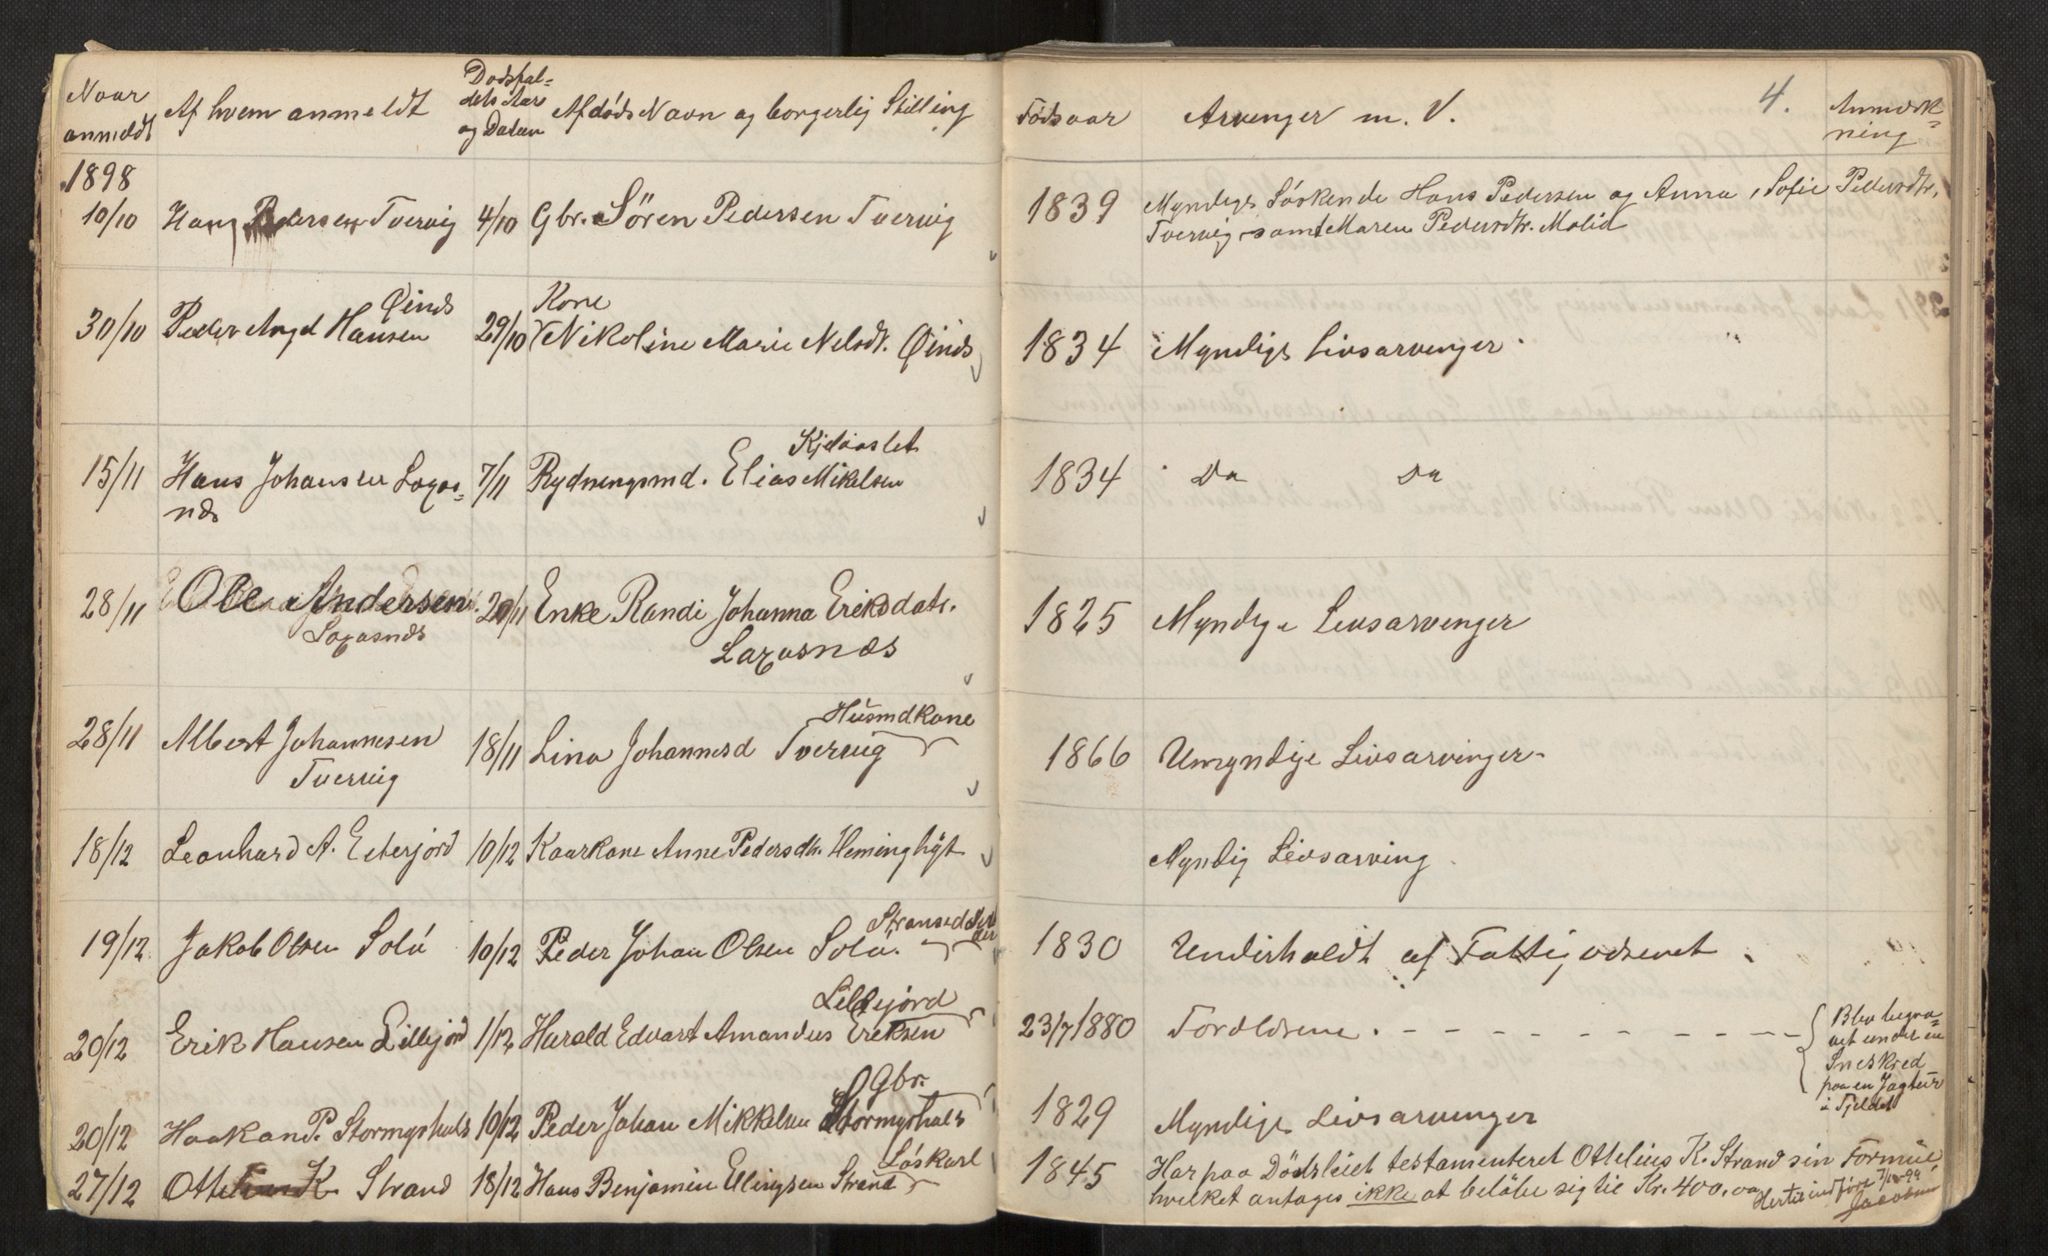 Naar anmeldt | Af hvem anmeldt | Dødsfal-dets Aar og Datum | Afdødes Navn og borgerlig Stilling | Fødsaar | Arvinger m. V. | 4. | Anmærk=ning
1898
10/10 | Hans Pedersen Tvervig | 4/10 | Gbr. Søren Pedersen Tvervig | 1839 | Myndige Søskende Hans Pedersen og Anna, Sofie Pedersdtr.
Tvervig samt Maren Pedersdtr.
30/10 | Peder Angel Hansen Øinæs | 29/10 | Kone Nikoline Marie Nelsdt. Øinæs | 1834 | Myndige Livsarvenger
15/11 | Hans Johansen Laxaa=næs | 7/11 | Rydningsmd. Elias Mikelsen | 1834 | Do Do
28/11 | Ole Andersen Laxaasnæs | 20/11 | Enke Randi Johanna Eriksdatr. Laxaasnæs | 1825 | Myndige Livsarvenger
28/11 | Albert Johannesen Tvervig | 18/11 | Lina Johannesd Tvervig Husmdkone | 1866 | Umyndige Livsarvinger
18/12 | Leonhard A. Eiterjord | 10/12 | Kaarkone Anne Pedersdtr. Heminghyt | Myndig Livsarving
19/12 | Jakob Olsen Solø | 10/12 | Peder Johan Olsen Solø. | 1830 | Underholdt af Fattigvæsenet
20/12 | Erik Hansen Lillejord | 1/12 | Harald Edvart Amandus Eriksen Lillejord | 23/7/1880 | Forældrene | Blev begra=vet under en Sneskred paa en Jagttur i Fjeldet
20/12 | Haakon P. Stormyrhals | 10/12 | Peder Johan Mikkelsen Stormyrhals Gbr. | 1829 | Myndige Livsarvenger
27/12 | Ottelius K. Strand | 18/12 | Hans Benjamin Ellingsen Strand Løskarl | 1845 | Har paa Dødsleiet testamenteret Ottelius K. Strand sin Formue,
hvilket antages ikke at beløbe sig til Kr. 400.00
Hertil indført 7/1-99
Jacobsen